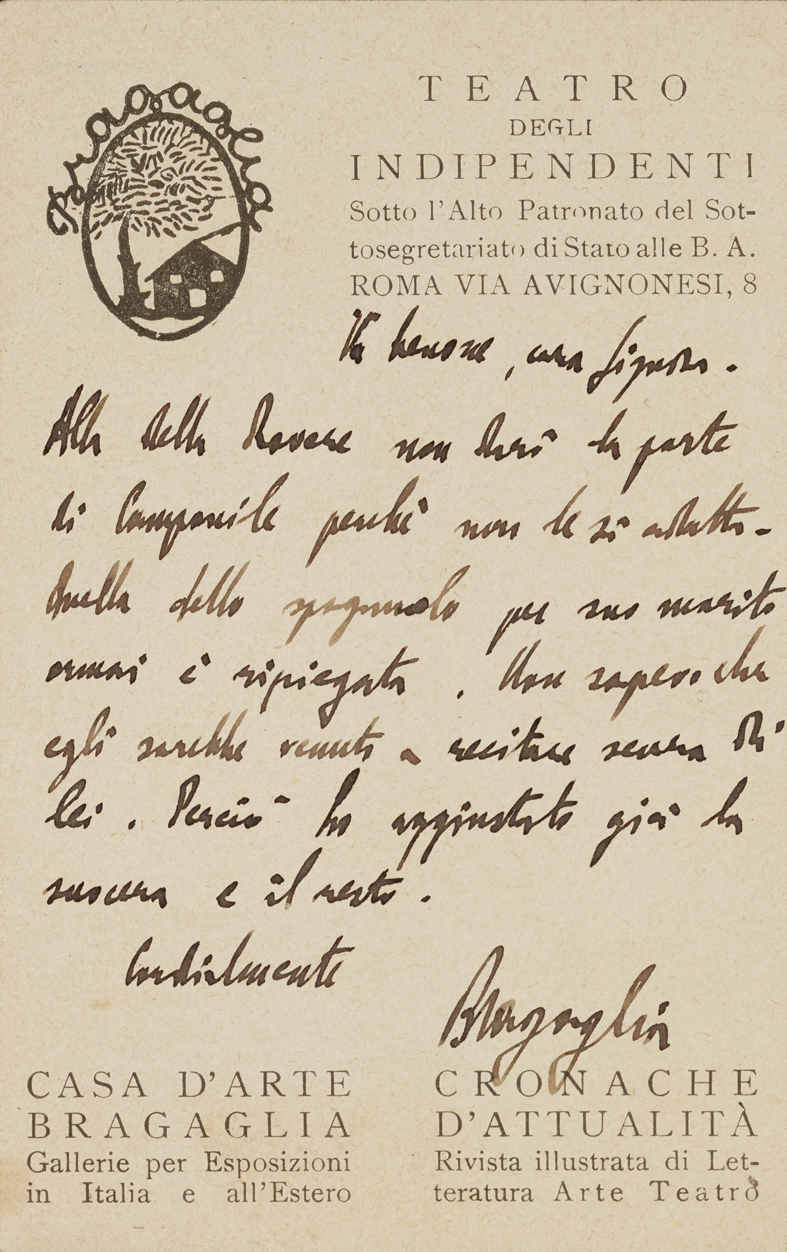 Bragaglia
TEATRO
DEGLI
INDIPENDENTI
Sotto l'Alto Patronato del Sot-
tosegretariato di Stato alle B. A.
ROMA VIA AVIGNONESI, 8
Va benone, cara Signora.
Alla della Rovere non darò la parte
di Campanile perchè non le si adatta.
Quella dello spagnuolo per suo marito
ormai è ripiegata. Non sapevo che
egli sarebbe venuto a recitare senza di
lei. Perciò ho aggiustato già la
suocera e il resto.
Cordialmente
Bragaglia
CASA D'ARTE
BRAGAGLIA
Gallerie per Esposizioni
in Italia e all'Estero
CRONACHE
D'ATTUALITÀ
Rivista illustrata di Let-
teratura Arte Teatro